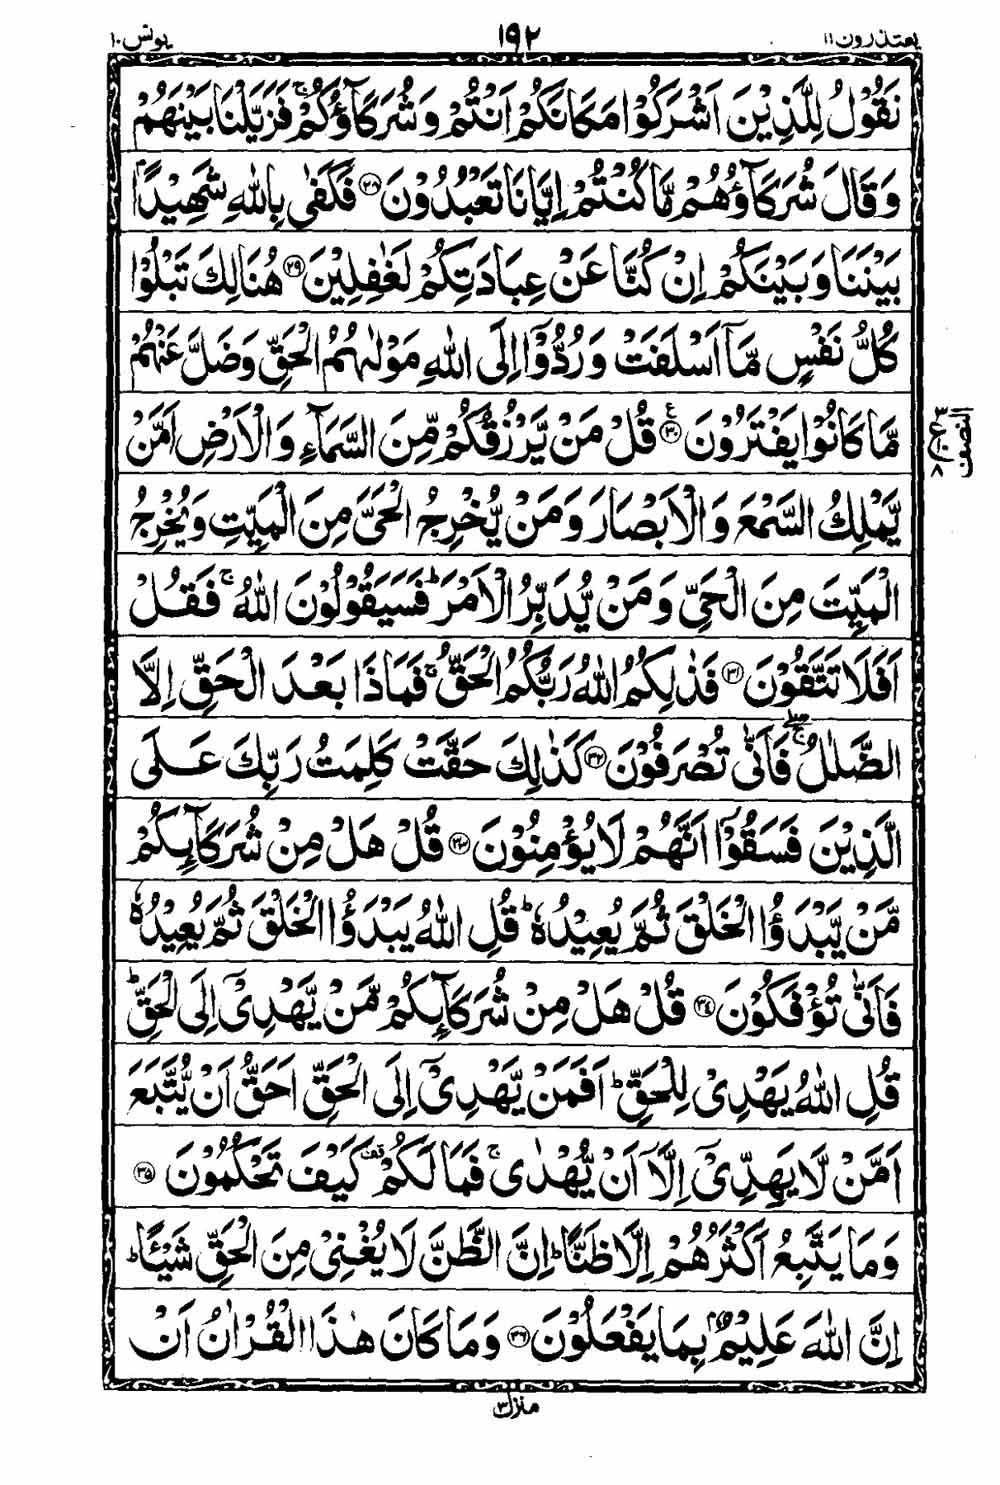 یعتذرون ۱۱
۱۹۲
یونس ۱۰
نَقُوْلُ لِلَّذِيْنَ اَشْرَكُوْا مَكَانَكُمْ اَنْتُمْ وَشُرَكَآؤُكُمْ ۚ فَزَيَّلْنَا بَيْنَهُمْ
وَقَالَ شُرَكَآؤُهُمْ مَّا كُنْتُمْ اِيَّانَا تَعْبُدُوْنَ ﴿۲۸﴾ فَكَفٰى بِاللّٰهِ شَهِيْدًاۢ
بَيْنَنَا وَبَيْنَكُمْ اِنْ كُنَّا عَنْ عِبَادَتِكُمْ لَغٰفِلِيْنَ ﴿۲۹﴾ هُنَالِكَ تَبْلُوْا
كُلُّ نَفْسٍ مَّاۤ اَسْلَفَتْ وَرُدُّوْۤا اِلَى اللّٰهِ مَوْلٰىهُمُ الْحَقِّ وَضَلَّ عَنْهُمْ
مَّا كَانُوْا يَفْتَرُوْنَ ﴿۳۰﴾ ع قُلْ مَنْ يَّرْزُقُكُمْ مِّنَ السَّمَآءِ وَالْاَرْضِ اَمَّنْ
النصف
ع
۳
۱۰
۸
يَّمْلِكُ السَّمْعَ وَالْاَبْصَارَ وَمَنْ يُّخْرِجُ الْحَيَّ مِنَ الْمَيِّتِ وَيُخْرِجُ
الْمَيِّتَ مِنَ الْحَيِّ وَمَنْ يُّدَبِّرُ الْاَمْرَ ؕ فَسَيَقُوْلُوْنَ اللّٰهُ ۚ فَقُلْ
اَفَلَا تَتَّقُوْنَ ﴿۳۱﴾ فَذٰلِكُمُ اللّٰهُ رَبُّكُمُ الْحَقُّ ۚ فَمَاذَا بَعْدَ الْحَقِّ اِلَّا
الضَّلٰلُ ۚۖ فَاَنّٰى تُصْرَفُوْنَ ﴿۳۲﴾ كَذٰلِكَ حَقَّتْ كَلِمَتُ رَبِّكَ عَلَى
الَّذِيْنَ فَسَقُوْۤا اَنَّهُمْ لَا يُؤْمِنُوْنَ ﴿۳۳﴾ قُلْ هَلْ مِنْ شُرَكَآئِكُمْ
مَّنْ يَّبْدَؤُا الْخَلْقَ ثُمَّ يُعِيْدُهٗ ؕ قُلِ اللّٰهُ يَبْدَؤُا الْخَلْقَ ثُمَّ يُعِيْدُهٗ
فَاَنّٰى تُؤْفَكُوْنَ ﴿۳۴﴾ قُلْ هَلْ مِنْ شُرَكَآئِكُمْ مَّنْ يَّهْدِيْۤ اِلَى الْحَقِّ ؕ
قُلِ اللّٰهُ يَهْدِيْ لِلْحَقِّ ؕ اَفَمَنْ يَّهْدِيْۤ اِلَى الْحَقِّ اَحَقُّ اَنْ يُّتَّبَعَ
اَمَّنْ لَّا يَهِدِّيْۤ اِلَّاۤ اَنْ يُّهْدٰى ۚ فَمَا لَكُمْ قف كَيْفَ تَحْكُمُوْنَ ﴿۳۵﴾
وَمَا يَتَّبِعُ اَكْثَرُهُمْ اِلَّا ظَنًّا ؕ اِنَّ الظَّنَّ لَا يُغْنِيْ مِنَ الْحَقِّ شَيْـًٔا ؕ
اِنَّ اللّٰهَ عَلِيْمٌۢ بِمَا يَفْعَلُوْنَ ﴿۳۶﴾ وَمَا كَانَ هٰذَا الْقُرْاٰنُ اَنْ
منزل ۳